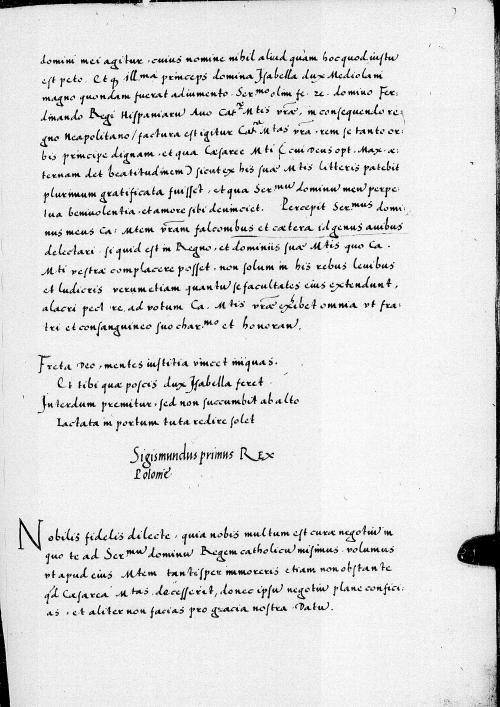 domini mei agitur, cuius nomine nihil aliud quam hoc quod iustu
est peto. Et q, illma princeps domina Isabella dux Mediolani
magno quondam fuerat adiumento. Sermo olim fe. re. domino Fer
dinando Regi Hispaniaru Auo Catce Mtis vrae, in consequendo re
gno Neapolitano / factura est igitur Catca Mtas vra. rem se tanto or
bis principe dignam, et qua Caesaree Mti (cui Deus opt. Max. ae
ternam det beatitudinem) sicut ex his suae Mtis litteris patebit
plurimum gratificata fuisset, et qua Sermu dominu meu perpe
tua beniuolentia, et amore sibi deuinciet. Percepit Sermus domi
nus meus Ca. Mtem vram falconibus et catera id genus auibus
delectari. si quid est in Regno, et dominiis suae Mtis quo Ca.
Mti vestrae complacere posset, non solum in his rebus leuibus
et ludicris verum etiam quantu se facultates eius extendunt,
alacri pectore, ad votum Ca. Mtis vrae exibet omnia vt fra
tri et consanguineo suo charmo et honoran.
Freta Deo, mentes iustitia vincet iniquas.
Et tibi quae poscis dux Isabella feret
Interdum premitur, sed non succumbit ab alto
Iactata in portum tuta redire solet
Sigismundus primus Rex
Polonie
Nobilis fidelis dilecte, quia nobis multum est curae negotiu in
quo te ad Sermu dominu Regem catholicu misimus. volumus
vt apud eius Mtem tantisper immoreris etiam non obstante
qd Caesarea Mtas decesserit, donec ipsu negotiu plane confici
as, et aliter non facias pro gracia nostra. Datu.